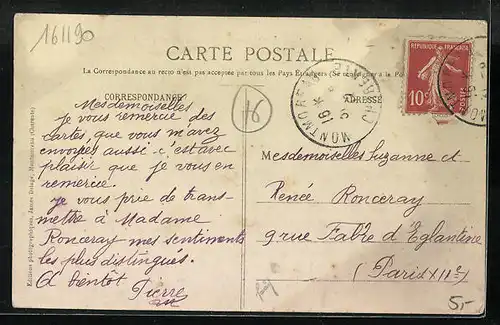 161190
CARTE POSTALE
La Correspondance au recto n'est pas acceptée par tous les Pays Étrangers (Se renseigner à la Poste)
CORRESPONDANCE
ADRESSE
Mesdemoiselles
je vous remercie des
cartes, que vous m'avez
envoyées aussi c'est avec
plaisir que je vous en
remercie.
je vous prie de trans-
mettre à Madame
Ronceray mes sentiments
les plus distingués.
A bientôt Pierre
Mesdemoiselles Suzanne et
Renée Ronceray
9 rue Fabre d'Eglantine
(Paris XII e)
RÉPUBLIQUE FRANÇAISE
10c
POSTES
MONTMOREAU
CHARENTE
5-